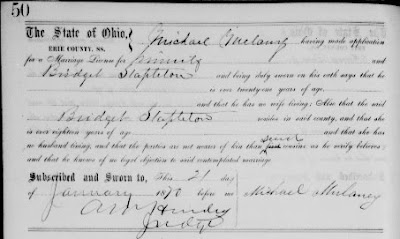 50
The State of Ohio, Michael Mulaney having made application
ERIE COUNTY, SS.
for a Marriage License for himself and
Bridget Stapleton and being duly sworn on his oath says that he
is over twenty-one years of age,
and that he has no wife living; Also that the said
Bridget Stapleton resides in said county, and that she
is over eighteen years of age and that she has
second
no husband living, and that the parties are not nearer of kin than first cousins as he verily believes;
and that he knows of no legal objection to said contemplated marriage.
Subscribed and Sworn to, This 21 day
of January 1870 before me Michael Mulaney
Judge